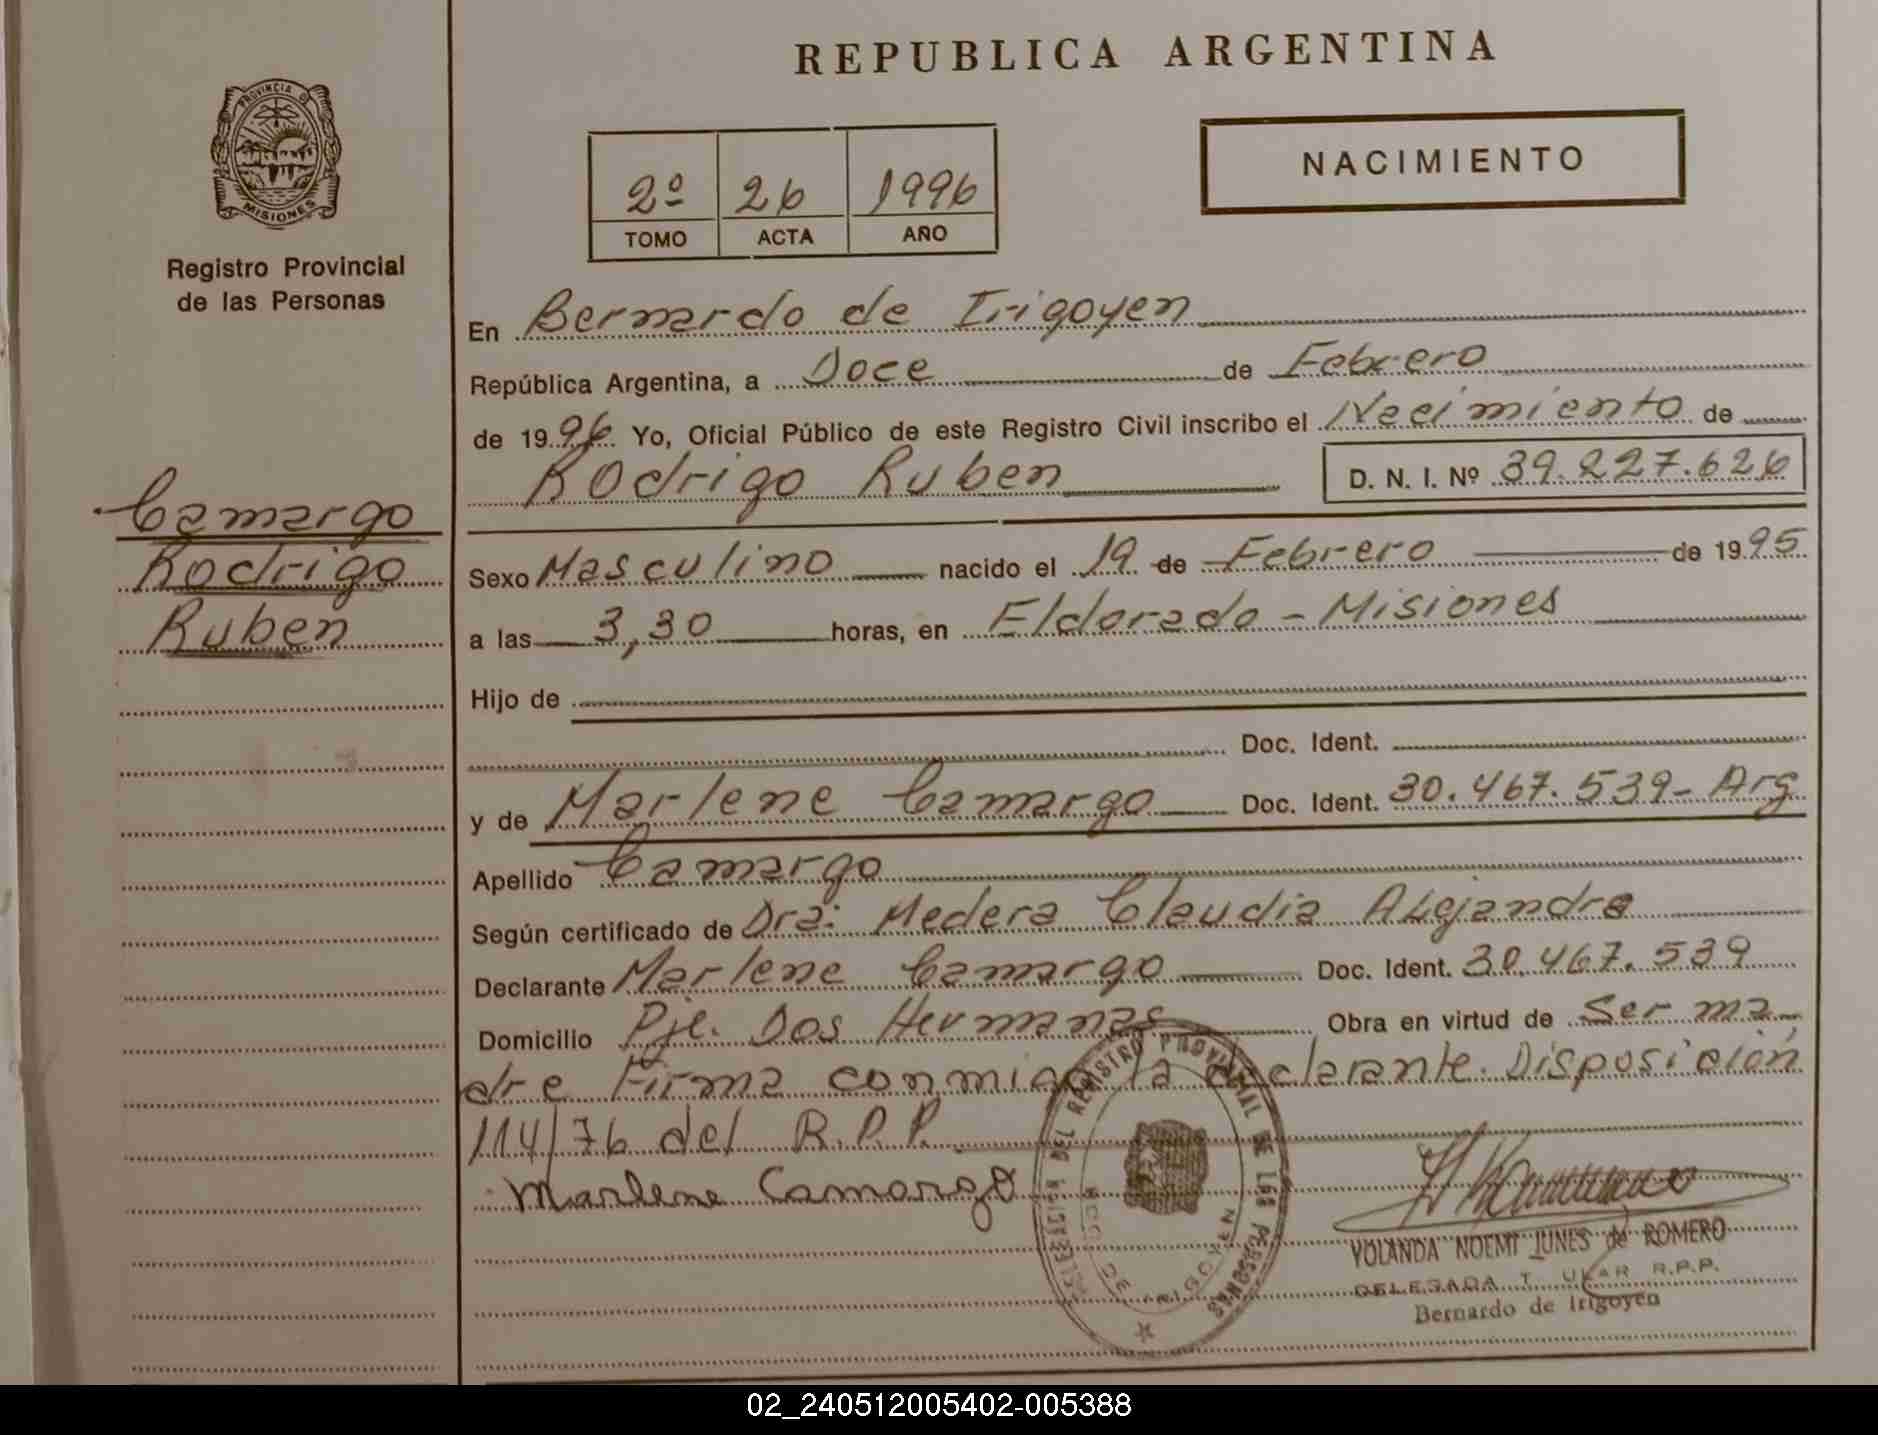 REPUBLICA ARGENTINA
PROVINCIA D
MISIONES
Registro Provincial
de las Personas
2º 26 1996
TOMO ACTA AÑO
NACIMIENTO
En Bernardo de Irigoyen
República Argentina, a Doce de Febrero
de 1996 Yo, Oficial Público de este Registro Civil inscribo el Nacimiento de
Rodrigo Ruben D. N. I. Nº 39.227.626
Camargo
Rodrigo
Ruben
Sexo Masculino nacido el 19 de Febrero de 1995
a las 3,30 horas, en Eldorado - Misiones
Hijo de
Doc. Ident.
y de Marlene Camargo Doc. Ident. 30.467.539- Arg
Apellido Camargo
Según certificado de Dra: Madera Claudia Alejandra
Declarante Marlene Camargo Doc. Ident. 30.467.539
Domicilio Pje. Dos Hermanas Obra en virtud de Ser ma
dre Firma conmigo la declarante. Disposición
114/76 del R.P.P.
Marlene Camargo
DEL REGISTRO PROVINCIAL DE LAS PERSONAS
DE IRIGOYEN
YOLANDA NOEMI JUNES de ROMERO
DELEGADA TITULAR R.P.P.
Bernardo de Irigoyen
02_240512005402-005388